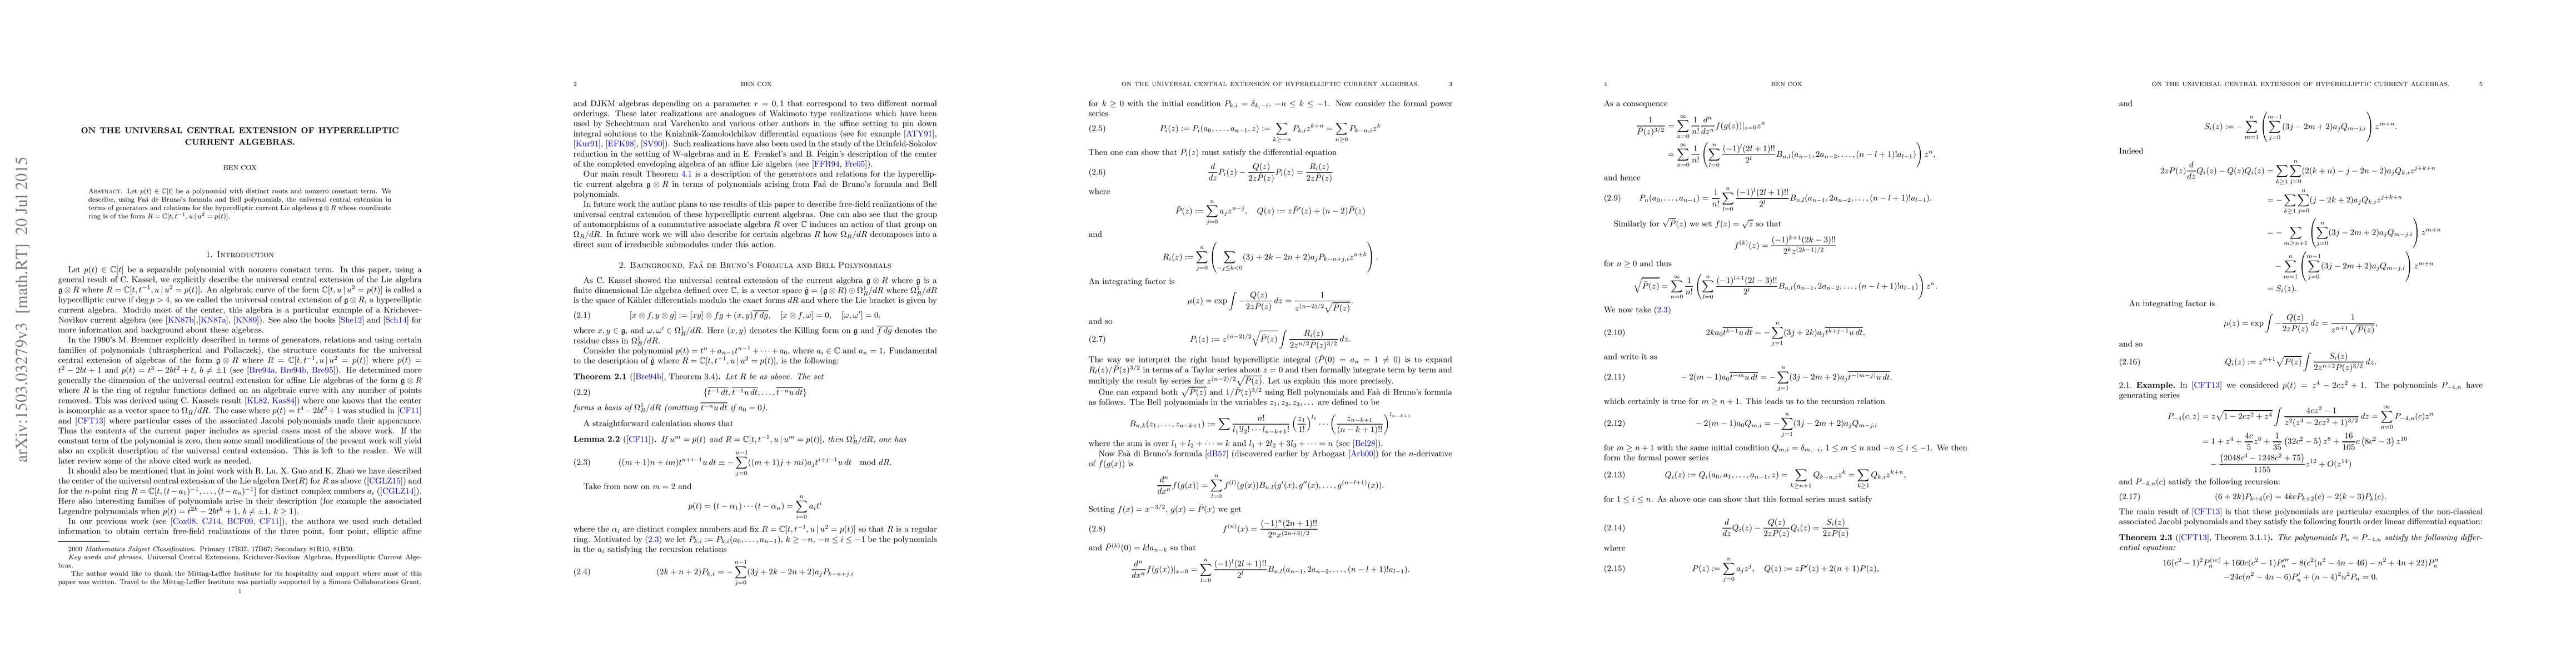 arXiv:1503.03279v3 [math.RT] 20 Jul 2015
ON THE UNIVERSAL CENTRAL EXTENSION OF HYPERELLIPTIC
CURRENT ALGEBRAS.
BEN COX
Abstract. Let p(t) ∈ ℂ[t] be a polynomial with distinct roots and nonzero constant term. We
describe, using Faá de Bruno's formula and Bell polynomials, the universal central extension in
terms of generators and relations for the hyperelliptic current Lie algebras 𝔤 ⊗ R whose coordinate
ring is of the form R = ℂ[t, t⁻¹, u | u² = p(t)].
1. Introduction
Let p(t) ∈ ℂ[t] be a separable polynomial with nonzero constant term. In this paper, using a
general result of C. Kassel, we explicitly describe the universal central extension of the Lie algebra
𝔤 ⊗ R where R = ℂ[t, t⁻¹, u | u² = p(t)]. An algebraic curve of the form ℂ[t, u | u² = p(t)] is called a
hyperelliptic curve if deg p > 4, so we called the universal central extension of 𝔤 ⊗ R, a hyperelliptic
current algebra. Modulo most of the center, this algebra is a particular example of a Krichever-
Novikov current algebra (see [KN87b],[KN87a], [KN89]). See also the books [She12] and [Sch14] for
more information and background about these algebras.
In the 1990's M. Bremner explicitly described in terms of generators, relations and using certain
families of polynomials (ultraspherical and Pollaczek), the structure constants for the universal
central extension of algebras of the form 𝔤 ⊗ R where R = ℂ[t, t⁻¹, u | u² = p(t)] where p(t) =
t² − 2bt + 1 and p(t) = t³ − 2bt² + t, b ≠ ±1 (see [Bre94a, Bre94b, Bre95]). He determined more
generally the dimension of the universal central extension for affine Lie algebras of the form 𝔤 ⊗ R
where R is the ring of regular functions defined on an algebraic curve with any number of points
removed. This was derived using C. Kassels result [KL82, Kas84]) where one knows that the center
is isomorphic as a vector space to Ω_R/dR. The case where p(t) = t⁴ − 2bt² + 1 was studied in [CF11]
and [CFT13] where particular cases of the associated Jacobi polynomials made their appearance.
Thus the contents of the current paper includes as special cases most of the above work. If the
constant term of the polynomial is zero, then some small modifications of the present work will yield
also an explicit description of the universal central extension. This is left to the reader. We will
later review some of the above cited work as needed.
It should also be mentioned that in joint work with R. Lu, X. Guo and K. Zhao we have described
the center of the universal central extension of the Lie algebra Der(R) for R as above ([CGLZ15]) and
for the n-point ring R = ℂ[t, (t − a₁)⁻¹, . . . , (t − aₙ)⁻¹] for distinct complex numbers aᵢ ([CGLZ14]).
Here also interesting families of polynomials arise in their description (for example the associated
Legendre polynomials when p(t) = t²ᵏ − 2btᵏ + 1, b ≠ ±1, k ≥ 1).
In our previous work (see [Cox08, CJ14, BCF09, CF11]), the authors we used such detailed
information to obtain certain free-field realizations of the three point, four point, elliptic affine
2000 Mathematics Subject Classification. Primary 17B37, 17B67; Secondary 81R10, 81B50.
Key words and phrases. Universal Central Extensions, Krichever-Novikov Algebras, Hyperelliptic Current Alge-
bras.
The author would like to thank the Mittag-Leffler Institute for its hospitality and support where most of this
paper was written. Travel to the Mittag-Leffler Institute was partially supported by a Simons Collaborations Grant.
1
2 BEN COX
and DJKM algebras depending on a parameter r = 0, 1 that correspond to two different normal
orderings. These later realizations are analogues of Wakimoto type realizations which have been
used by Schechtman and Varchenko and various other authors in the affine setting to pin down
integral solutions to the Knizhnik-Zamolodchikov differential equations (see for example [ATY91],
[Kur91], [EFK98], [SV90]). Such realizations have also been used in the study of the Drinfeld-Sokolov
reduction in the setting of W-algebras and in E. Frenkel's and B. Feigin's description of the center
of the completed enveloping algebra of an affine Lie algebra (see [FFR94, Fre05]).
Our main result Theorem 4.1 is a description of the generators and relations for the hyperellip-
tic current algebra 𝔤 ⊗ R in terms of polynomials arising from Faá de Bruno's formula and Bell
polynomials.
In future work the author plans to use results of this paper to describe free-field realizations of the
universal central extension of these hyperelliptic current algebras. One can also see that the group
of automorphisms of a commutative associate algebra R over ℂ induces an action of that group on
Ω_R/dR. In future work we will also describe for certain algebras R how Ω_R/dR decomposes into a
direct sum of irreducible submodules under this action.
2. Background, Faá de Bruno's Formula and Bell Polynomials
As C. Kassel showed the universal central extension of the current algebra 𝔤 ⊗ R where 𝔤 is a
finite dimensional Lie algebra defined over ℂ, is a vector space 𝔤̂ = (𝔤 ⊗ R) ⊕ Ω¹_R/dR where Ω¹_R/dR
is the space of Kähler differentials modulo the exact forms dR and where the Lie bracket is given by
(2.1) [x ⊗ f, y ⊗ g] := [xy] ⊗ fg + (x, y)\overline{f dg}, [x ⊗ f, ω] = 0, [ω, ω′] = 0,
where x, y ∈ 𝔤, and ω, ω′ ∈ Ω¹_R/dR. Here (x, y) denotes the Killing form on 𝔤 and \overline{f dg} denotes the
residue class in Ω¹_R/dR.
Consider the polynomial p(t) = tⁿ + a_{n−1}t^{n−1} + · · · + a₀, where aᵢ ∈ ℂ and aₙ = 1. Fundamental
to the description of 𝔤̂ where R = ℂ[t, t⁻¹, u | u² = p(t)], is the following:
Theorem 2.1 ([Bre94b], Theorem 3.4). Let R be as above. The set
(2.2) {\overline{t⁻¹ dt}, \overline{t⁻¹u dt}, . . . , \overline{t⁻ⁿu dt}}
forms a basis of Ω¹_R/dR (omitting \overline{t⁻ⁿu dt} if a₀ = 0).
A straightforward calculation shows that
Lemma 2.2 ([CF11]). If uᵐ = p(t) and R = ℂ[t, t⁻¹, u | uᵐ = p(t)], then Ω¹_R/dR, one has
(2.3) ((m + 1)n + im)t^{n+i−1}u dt ≡ −∑_{j=0}^{n−1}((m + 1)j + mi)a_j t^{i+j−1}u dt mod dR.
Take from now on m = 2 and
p(t) = (t − α₁) · · · (t − αₙ) = ∑_{i=0}^{n} aᵢtⁱ
where the αᵢ are distinct complex numbers and fix R = ℂ[t, t⁻¹, u | u² = p(t)] so that R is a regular
ring. Motivated by (2.3) we let P_{k,i} := P_{k,i}(a₀, . . . , a_{n−1}), k ≥ −n, −n ≤ i ≤ −1 be the polynomials
in the aᵢ satisfying the recursion relations
(2.4) (2k + n + 2)P_{k,i} = −∑_{j=0}^{n−1}(3j + 2k − 2n + 2)a_j P_{k−n+j,i}
ON THE UNIVERSAL CENTRAL EXTENSION OF HYPERELLIPTIC CURRENT ALGEBRAS. 3
for k ≥ 0 with the initial condition P_{k,i} = δ_{k,−i}, −n ≤ k ≤ −1. Now consider the formal power
series
(2.5) P_i(z) := P_i(a₀, . . . , a_{n−1}, z) := ∑_{k≥−n} P_{k,i}z^{k+n} = ∑_{n≥0} P_{k−n,i}z^k
Then one can show that P_i(z) must satisfy the differential equation
(2.6) \frac{d}{dz}P_i(z) − \frac{Q(z)}{2z\bar{P}(z)}P_i(z) = \frac{R_i(z)}{2z\bar{P}(z)}
where
\bar{P}(z) := ∑_{j=0}^{n} a_j z^{n−j}, Q(z) := z\bar{P}′(z) + (n − 2)\bar{P}(z)
and
R_i(z) := ∑_{j=0}^{n} (∑_{−j≤k<0}(3j + 2k − 2n + 2)a_j P_{k−n+j,i}z^{n+k}).
An integrating factor is
μ(z) = exp ∫ −\frac{Q(z)}{2z\bar{P}(z)} dz = \frac{1}{z^{(n−2)/2}\sqrt{\bar{P}(z)}}.
and so
(2.7) P_i(z) := z^{(n−2)/2}\sqrt{\bar{P}(z)} ∫ \frac{R_i(z)}{2z^{n/2}\bar{P}(z)^{3/2}} dz.
The way we interpret the right hand hyperelliptic integral (\bar{P}(0) = aₙ = 1 ≠ 0) is to expand
R_i(z)/\bar{P}(z)^{3/2} in terms of a Taylor series about z = 0 and then formally integrate term by term and
multiply the result by series for z^{(n−2)/2}\sqrt{\bar{P}(z)}. Let us explain this more precisely.
One can expand both \sqrt{\bar{P}(z)} and 1/\bar{P}(z)^{3/2} using Bell polynomials and Faà di Bruno's formula
as follows. The Bell polynomials in the variables z₁, z₂, z₃, . . . are defined to be
B_{n,k}(z₁, . . . , z_{n−k+1}) := ∑ \frac{n!}{l₁!l₂! · · · l_{n−k+1}!} (\frac{z₁}{1!})^{l₁} · · · (\frac{z_{n−k+1}}{(n − k + 1)!})^{l_{n−k+1}}
where the sum is over l₁ + l₂ + · · · = k and l₁ + 2l₂ + 3l₃ + · · · = n (see [Bel28]).
Now Faà di Bruno's formula [dB57] (discovered earlier by Arbogast [Arb00]) for the n-derivative
of f(g(x)) is
\frac{dⁿ}{dxⁿ}f(g(x)) = ∑_{l=0}^{n} f^{(l)}(g(x))B_{n,l}(g′(x), g″(x), . . . , g^{(n−l+1)}(x)).
Setting f(x) = x^{−3/2}, g(x) = \bar{P}(x) we get
(2.8) f^{(n)}(x) = \frac{(−1)ⁿ(2n + 1)!!}{2ⁿx^{(2n+3)/2}}
and \bar{P}^{(k)}(0) = k!a_{n−k} so that
\frac{dⁿ}{dxⁿ}f(g(x))|_{x=0} = ∑_{l=0}^{n} \frac{(−1)^l(2l + 1)!!}{2^l} B_{n,l}(a_{n−1}, 2a_{n−2}, . . . , (n − l + 1)!a_{l−1}).
4 BEN COX
As a consequence
\frac{1}{\bar{P}(z)^{3/2}} = ∑_{n=0}^{∞} \frac{1}{n!}\frac{dⁿ}{dzⁿ}f(g(z))|_{z=0}zⁿ
= ∑_{n=0}^{∞} \frac{1}{n!} (∑_{l=0}^{n} \frac{(−1)^l(2l + 1)!!}{2^l} B_{n,l}(a_{n−1}, 2a_{n−2}, . . . , (n − l + 1)!a_{l−1})) zⁿ,
and hence
(2.9) P_n(a₀, . . . , a_{n−1}) = \frac{1}{n!} ∑_{l=0}^{n} \frac{(−1)^l(2l + 1)!!}{2^l} B_{n,l}(a_{n−1}, 2a_{n−2}, . . . , (n − l + 1)!a_{l−1}).
Similarly for \sqrt{\bar{P}}(z) we set f(z) = \sqrt{z} so that
f^{(k)}(z) = \frac{(−1)^{k+1}(2k − 3)!!}{2^k z^{(2k−1)/2}}
for n ≥ 0 and thus
\sqrt{\bar{P}(z)} = ∑_{n=0}^{∞} \frac{1}{n!} (∑_{l=0}^{n} \frac{(−1)^{l+1}(2l − 3)!!}{2^l} B_{n,l}(a_{n−1}, 2a_{n−2}, . . . , (n − l + 1)!a_{l−1})) zⁿ.
We now take (2.3)
(2.10) 2ka₀\overline{t^{k−1}u dt} = −∑_{j=1}^{n}(3j + 2k)a_j\overline{t^{k+j−1}u dt},
and write it as
(2.11) −2(m − 1)a₀\overline{t^{−m}u dt} = −∑_{j=1}^{n}(3j − 2m + 2)a_j\overline{t^{−(m−j)}u dt}.
which certainly is true for m ≥ n + 1. This leads us to the recursion relation
(2.12) −2(m − 1)a₀Q_{m,i} = −∑_{j=1}^{n}(3j − 2m + 2)a_jQ_{m−j,i}
for m ≥ n + 1 with the same initial condition Q_{m,i} = δ_{m,−i}, 1 ≤ m ≤ n and −n ≤ i ≤ −1. We then
form the formal power series
(2.13) Q_i(z) := Q_i(a₀, a₁, . . . , a_{n−1}, z) = ∑_{k≥n+1} Q_{k−n,i}z^k = ∑_{k≥1} Q_{k,i}z^{k+n},
for 1 ≤ i ≤ n. As above one can show that this formal series must satisfy
(2.14) \frac{d}{dz}Q_i(z) − \frac{Q(z)}{2zP(z)}Q_i(z) = \frac{S_i(z)}{2zP(z)}
where
(2.15) P(z) := ∑_{j=0}^{n} a_jz^j, Q(z) := zP′(z) + 2(n + 1)P(z),
ON THE UNIVERSAL CENTRAL EXTENSION OF HYPERELLIPTIC CURRENT ALGEBRAS. 5
and
S_i(z) := −∑_{m=1}^{n} (∑_{j=0}^{m−1}(3j − 2m + 2)a_jQ_{m−j,i}) z^{m+n}.
Indeed
2zP(z)\frac{d}{dz}Q_i(z) − Q(z)Q_i(z) = ∑_{k≥1}∑_{j=0}^{n}(2(k + n) − j − 2n − 2)a_jQ_{k,i}z^{j+k+n}
= −∑_{k≥1}∑_{j=0}^{n}(j − 2k + 2)a_jQ_{k,i}z^{j+k+n}
= −∑_{m≥n+1} (∑_{j=0}^{n}(3j − 2m + 2)a_jQ_{m−j,i}) z^{m+n}
−∑_{m=1}^{n} (∑_{j=0}^{m−1}(3j − 2m + 2)a_jQ_{m−j,i}) z^{m+n}
= S_i(z).
An integrating factor is
μ(z) = exp ∫ −\frac{Q(z)}{2zP(z)} dz = \frac{1}{z^{n+1}\sqrt{P(z)}},
and so
(2.16) Q_i(z) := z^{n+1}\sqrt{P(z)} ∫ \frac{S_i(z)}{2z^{n+2}P(z)^{3/2}} dz.
2.1. Example. In [CFT13] we considered p(t) = z⁴ − 2cz² + 1. The polynomials P_{−4,n} have
generating series
P_{−4}(c, z) = z\sqrt{1 − 2cz² + z⁴} ∫ \frac{4cz² − 1}{z²(z⁴ − 2cz² + 1)^{3/2}} dz = ∑_{n=0}^{∞} P_{−4,n}(c)zⁿ
= 1 + z⁴ + \frac{4c}{5}z⁶ + \frac{1}{35}(32c² − 5) z⁸ + \frac{16}{105}c (8c² − 3) z¹⁰
− \frac{(2048c⁴ − 1248c² + 75)}{1155}z¹² + O(z¹⁴)
and P_{−4,n}(c) satisfy the following recursion:
(2.17) (6 + 2k)P_{k+4}(c) = 4kcP_{k+2}(c) − 2(k − 3)P_k(c).
The main result of [CFT13] is that these polynomials are particular examples of the non-classical
associated Jacobi polynomials and they satisfy the following fourth order linear differential equation:
Theorem 2.3 ([CFT13], Theorem 3.1.1). The polynomials P_n = P_{−4,n} satisfy the following differ-
ential equation:
16(c² − 1)²P_n^{(iv)} + 160c(c² − 1)P_n‴ − 8(c²(n² − 4n − 46) − n² + 4n + 22)P_n″
−24c(n² − 4n − 6)P_n′ + (n − 4)²n²P_n = 0.